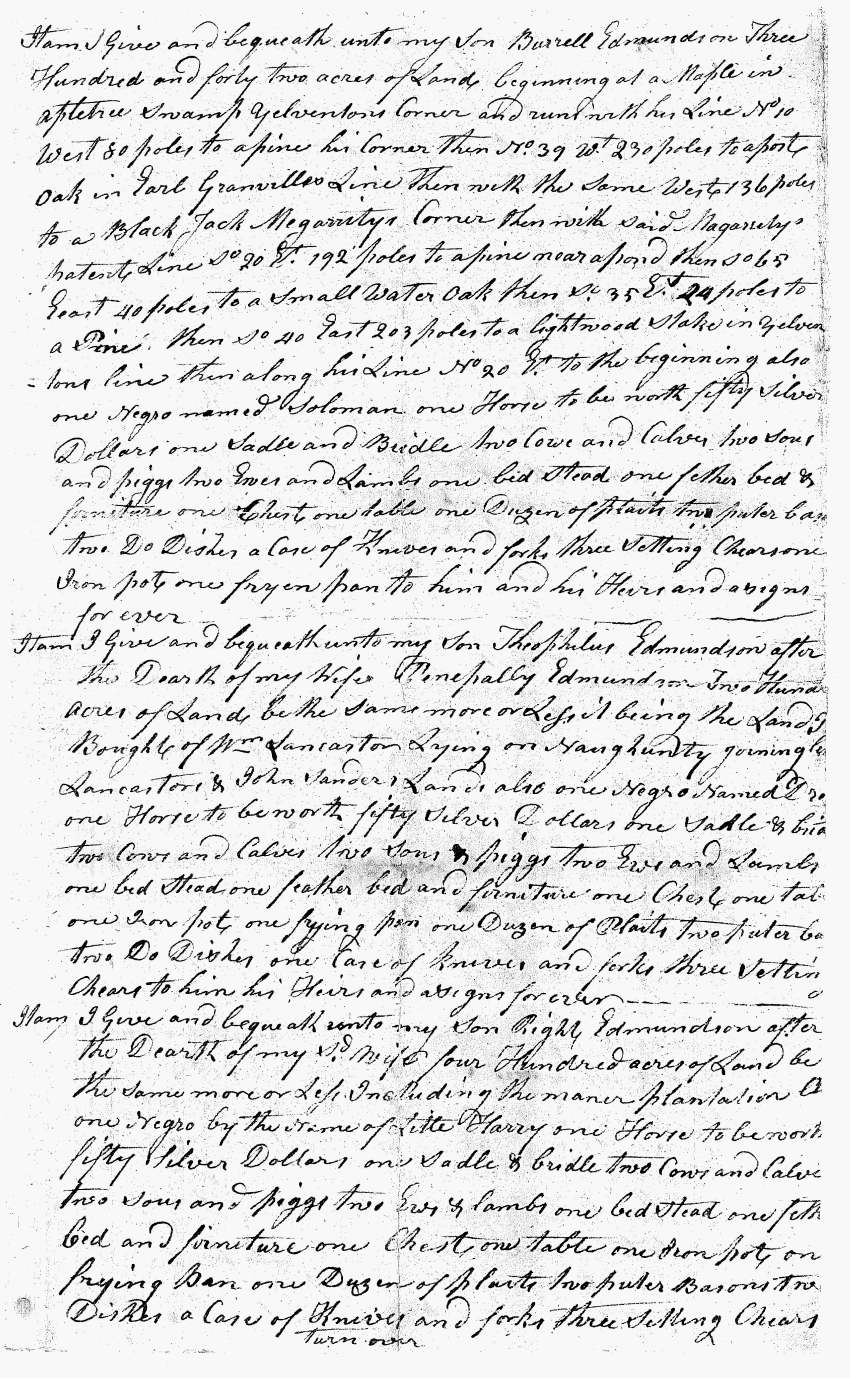 Itam I Give and bequeath unto my Son Burrell Edmundson Three
Hundred and forty two acres of Land beginning at a Maple in
apletree Swamp Yelventons Corner and runs with his Line No 10
West 80 poles to a pine his Corner then No. 39 Wt 230 poles to a post
Oak in Earl Granvilles Line then with the Same West 136 poles
to a Black Jack Megarritys Corner then with said Magarretys
patent Line So 20 Et. 192 poles to a pine noar a pond then So 65
Eeast 40 poles to a Small Water Oak then So 35 Et 24 poles to
a Pine. then So 40 East 203 poles to a lightwood Stake in Yelven
=tons line then along his Line No 20 Et to the beginning also
one Negro named Soloman one Horse to be worth fifty Silver
Dollars one Sadle and Bridle two Cows and Calves two Sous
and piggs two Ewes and Lambs one bed Stead one fether bed &
forniture one Chest one table one Duzen of plaits two puter bas
two Do Dishes a Case of Knives and forks three Setting Chears one
Iron pot one fryen pan to him and his Heirs and asigns
for ever
Itam I Give and bequeath unto my Son Theophilus Edmundson after
the Dearth of my Wife Penepally Edmundson Two Hund
acres of Land be the Same more or Less it being the Land I
Bought of Wm Lancaston Lying on Naughunty joining
Lancastons & John Sanders Lands also one Negro Named
one Horse to be worth fifty Silver Dollars one Sadle & brid
two Cows and Calves two Sous & piggs two Ews and Lambs
one bed Stead one feather bed and forniture one Chest one tab
one Iron pot one frying pan one Duzen of Plaits two puter ba
two Do Dishes one Case of knives and forks three Settin
Chears to him his Heirs and asigns for ever
Itam I Give and bequeath unto my Son Right Edmundson after
the Dearth of my Sd Wife four Hundred acres of Land be
the Same more or Less Including the maner plantation
one Negro by the Name of Litte Harry one Horse to be wort
fifty Silver Dollars one Sadle & bridle two Cows and Calve
two Sous and piggs two Ews & lambs one bed Stead one feth
bed and forniture one Chest one table one Iron pot on
frying Ban one Duzen of plaits two puter Basons two
Dishes a Case of Knives and forks three Setting Chears
turn over